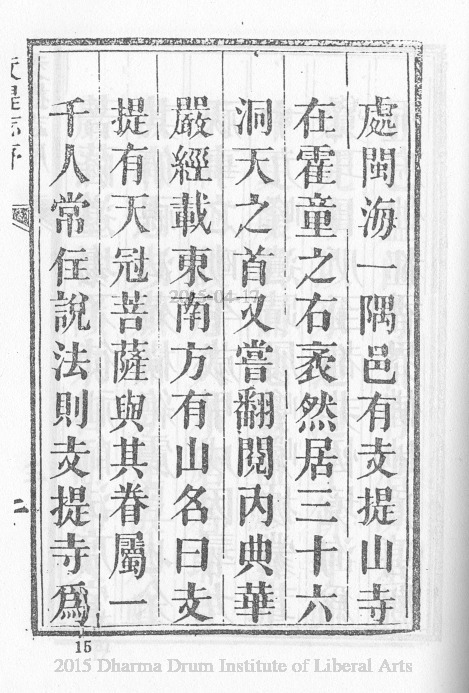 處閩海一隅邑有支提山寺
在霍童之右袤然居三十六
洞天之首又嘗翻閱內典華
嚴經載東南方有山名曰支
提有天冠菩薩與其眷屬一
千人常住說法則支提寺為
二
15
2015 Dharma Drum Institute of Liberal Arts